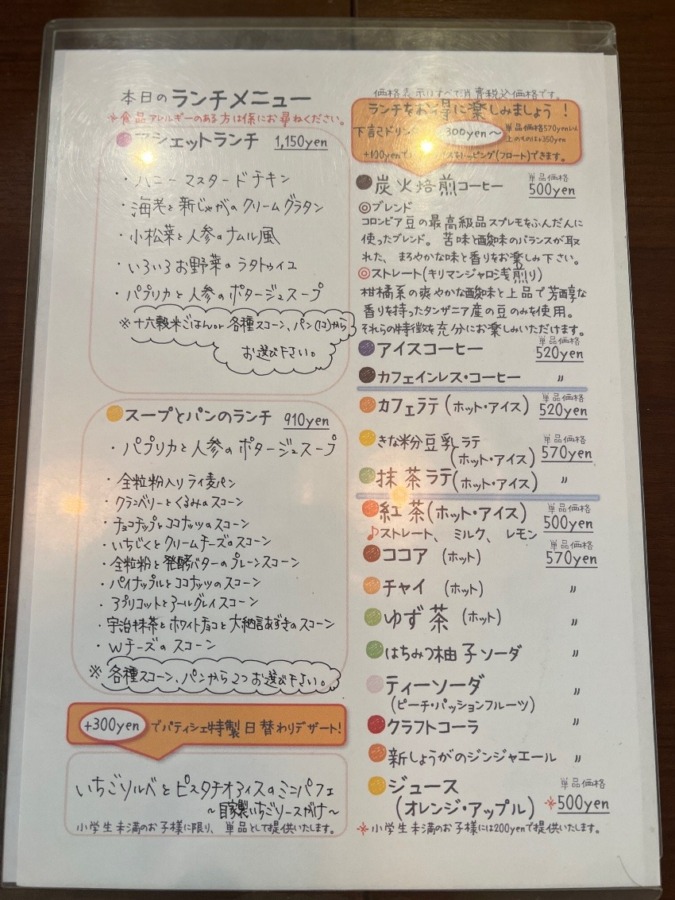 本日のランチメニュー
※食品アレルギーのある方は係にお尋ねください。
アシェットランチ 1,150yen
・ハニーマスタードチキン
・海老と新じゃがのクリームグラタン
・小松菜と人参のナムル風
・いろいろお野菜のラタトゥイユ
・パプリカと人参のポタージュスープ
※十六穀米ごはんor各種スコーン、パン(1コ)から
お選び下さい。
スープとパンのランチ 910yen
・パプリカと人参のポタージュスープ
・全粒粉入りライ麦パン
・クランベリーとくるみのスコーン
・チョコチップとココナッツのスコーン
・いちじくとクリームチーズのスコーン
・全粒粉と発酵バターのプレーンスコーン
・パイナップルとココナッツのスコーン
・アプリコットとアールグレイスコーン
・宇治抹茶とホワイトチョコと大納言あずきのスコーン
・Wチーズのスコーン
※各種スコーン、パンから2つお選び下さい。
+300yenでパティシェ特製日替わりデザート!
いちごソルベとピスタチオアイスのミニパフェ
~自家製いちごソースがけ~
小学生未満のお子様に限り、単品として提供いたします。
価格表示はすべて消費税込価格です。
ランチをお得に楽しみましょう!
下記ドリンク +300yen~ 単品価格570yen
上のものは+350yen
+100yenで トッピング(フロート)できます。
炭火焙煎コーヒー 単品価格
500yen
◎ブレンド
コロンビア豆の最高級品スプレモをふんだんに
使ったブレンド。苦味と酸味のバランスが取
れた、まろやかな味と香りをお楽しみ下さい。
◎ストレート(キリマンジャロ浅煎り)
柑橘系の爽やかな酸味と上品で芳醇な
香りを持つタンザニア産の豆のみを使用。
それらの特徴を充分にお楽しみいただけます。
アイスコーヒー 単品価格
520yen
カフェインレス・コーヒー 〃
カフェラテ(ホット・アイス) 単品価格
520yen
きな粉豆乳ラテ
(ホット・アイス) 単品価格
570yen
抹茶ラテ(ホット・アイス) 〃
紅茶(ホット・アイス) 単品価格
500yen
♪ストレート、ミルク、レモン
ココア(ホット) 単品価格
570yen
チャイ(ホット) 〃
ゆず茶(ホット) 〃
はちみつ柚子ソーダ 〃
ティーソーダ 〃
(ピーチ・パッションフルーツ)
クラフトコーラ 〃
新しょうがのジンジャエール 〃
ジュース 単品価格
(オレンジ・アップル) ※500yen
※小学生未満のお子様には200yenで提供いたします。